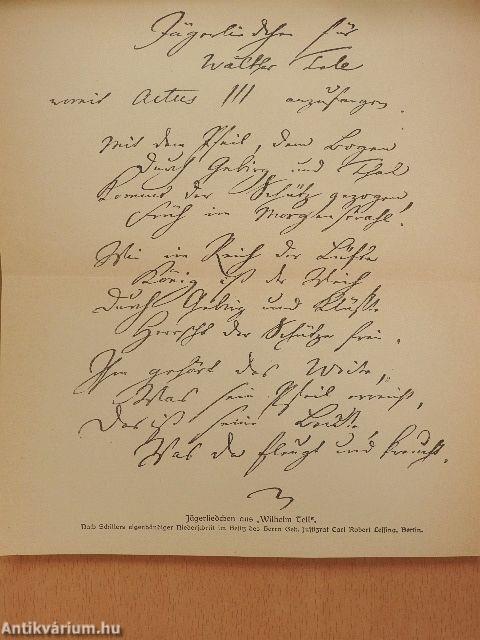 Jägerliedchen für
Walther Tell
womit Actus III anzufangen.
Mit dem Pfeil, dem Bogen
Durch Gebirg und Thal
Kommt der Schütz gezogen
Früh im Morgenstrahl!
Wie im Reich der Lüfte
König ist der Weih
Durch Gebirg und Klüfte
Herrscht der Schütze frei.
Ihm gehört das Weite,
Was sein Pfeil erreicht,
Das ist seine Beute,
Was da fleugt und kreucht.
Jägerliedchen aus „Wilhelm Tell“.
Nach Schillers eigenhändiger Niederschrift im Besitz des Herrn Geh. Justizrat Carl Robert Lessing, Berlin.
Antikvárium.hu